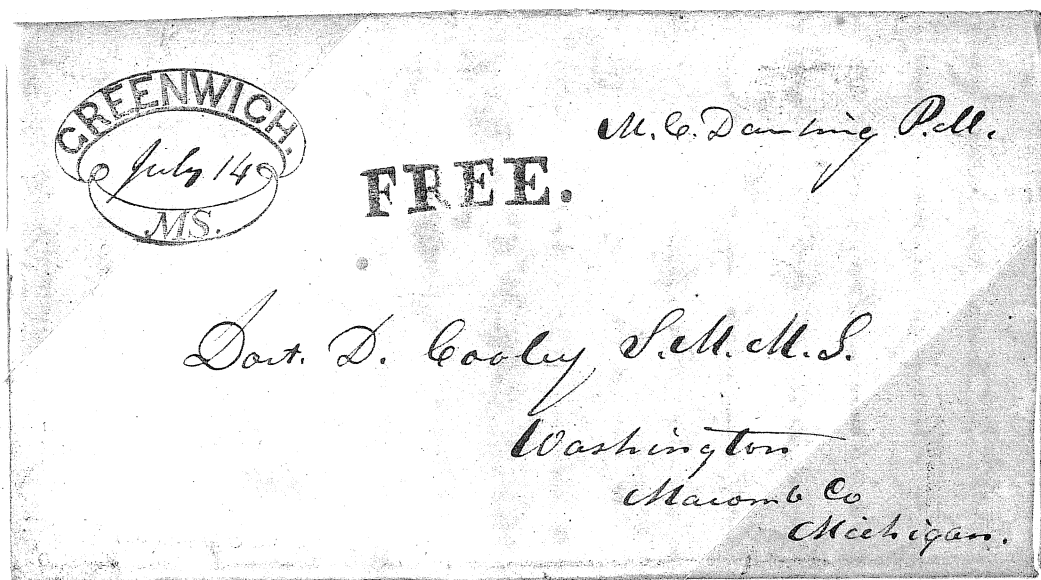 GREENWICH.
July 14
MS.
FREE.
M. C. P.M.
Doct. D. Cooley S.M.M.S.
Washington
Macomb Co
Michigan.